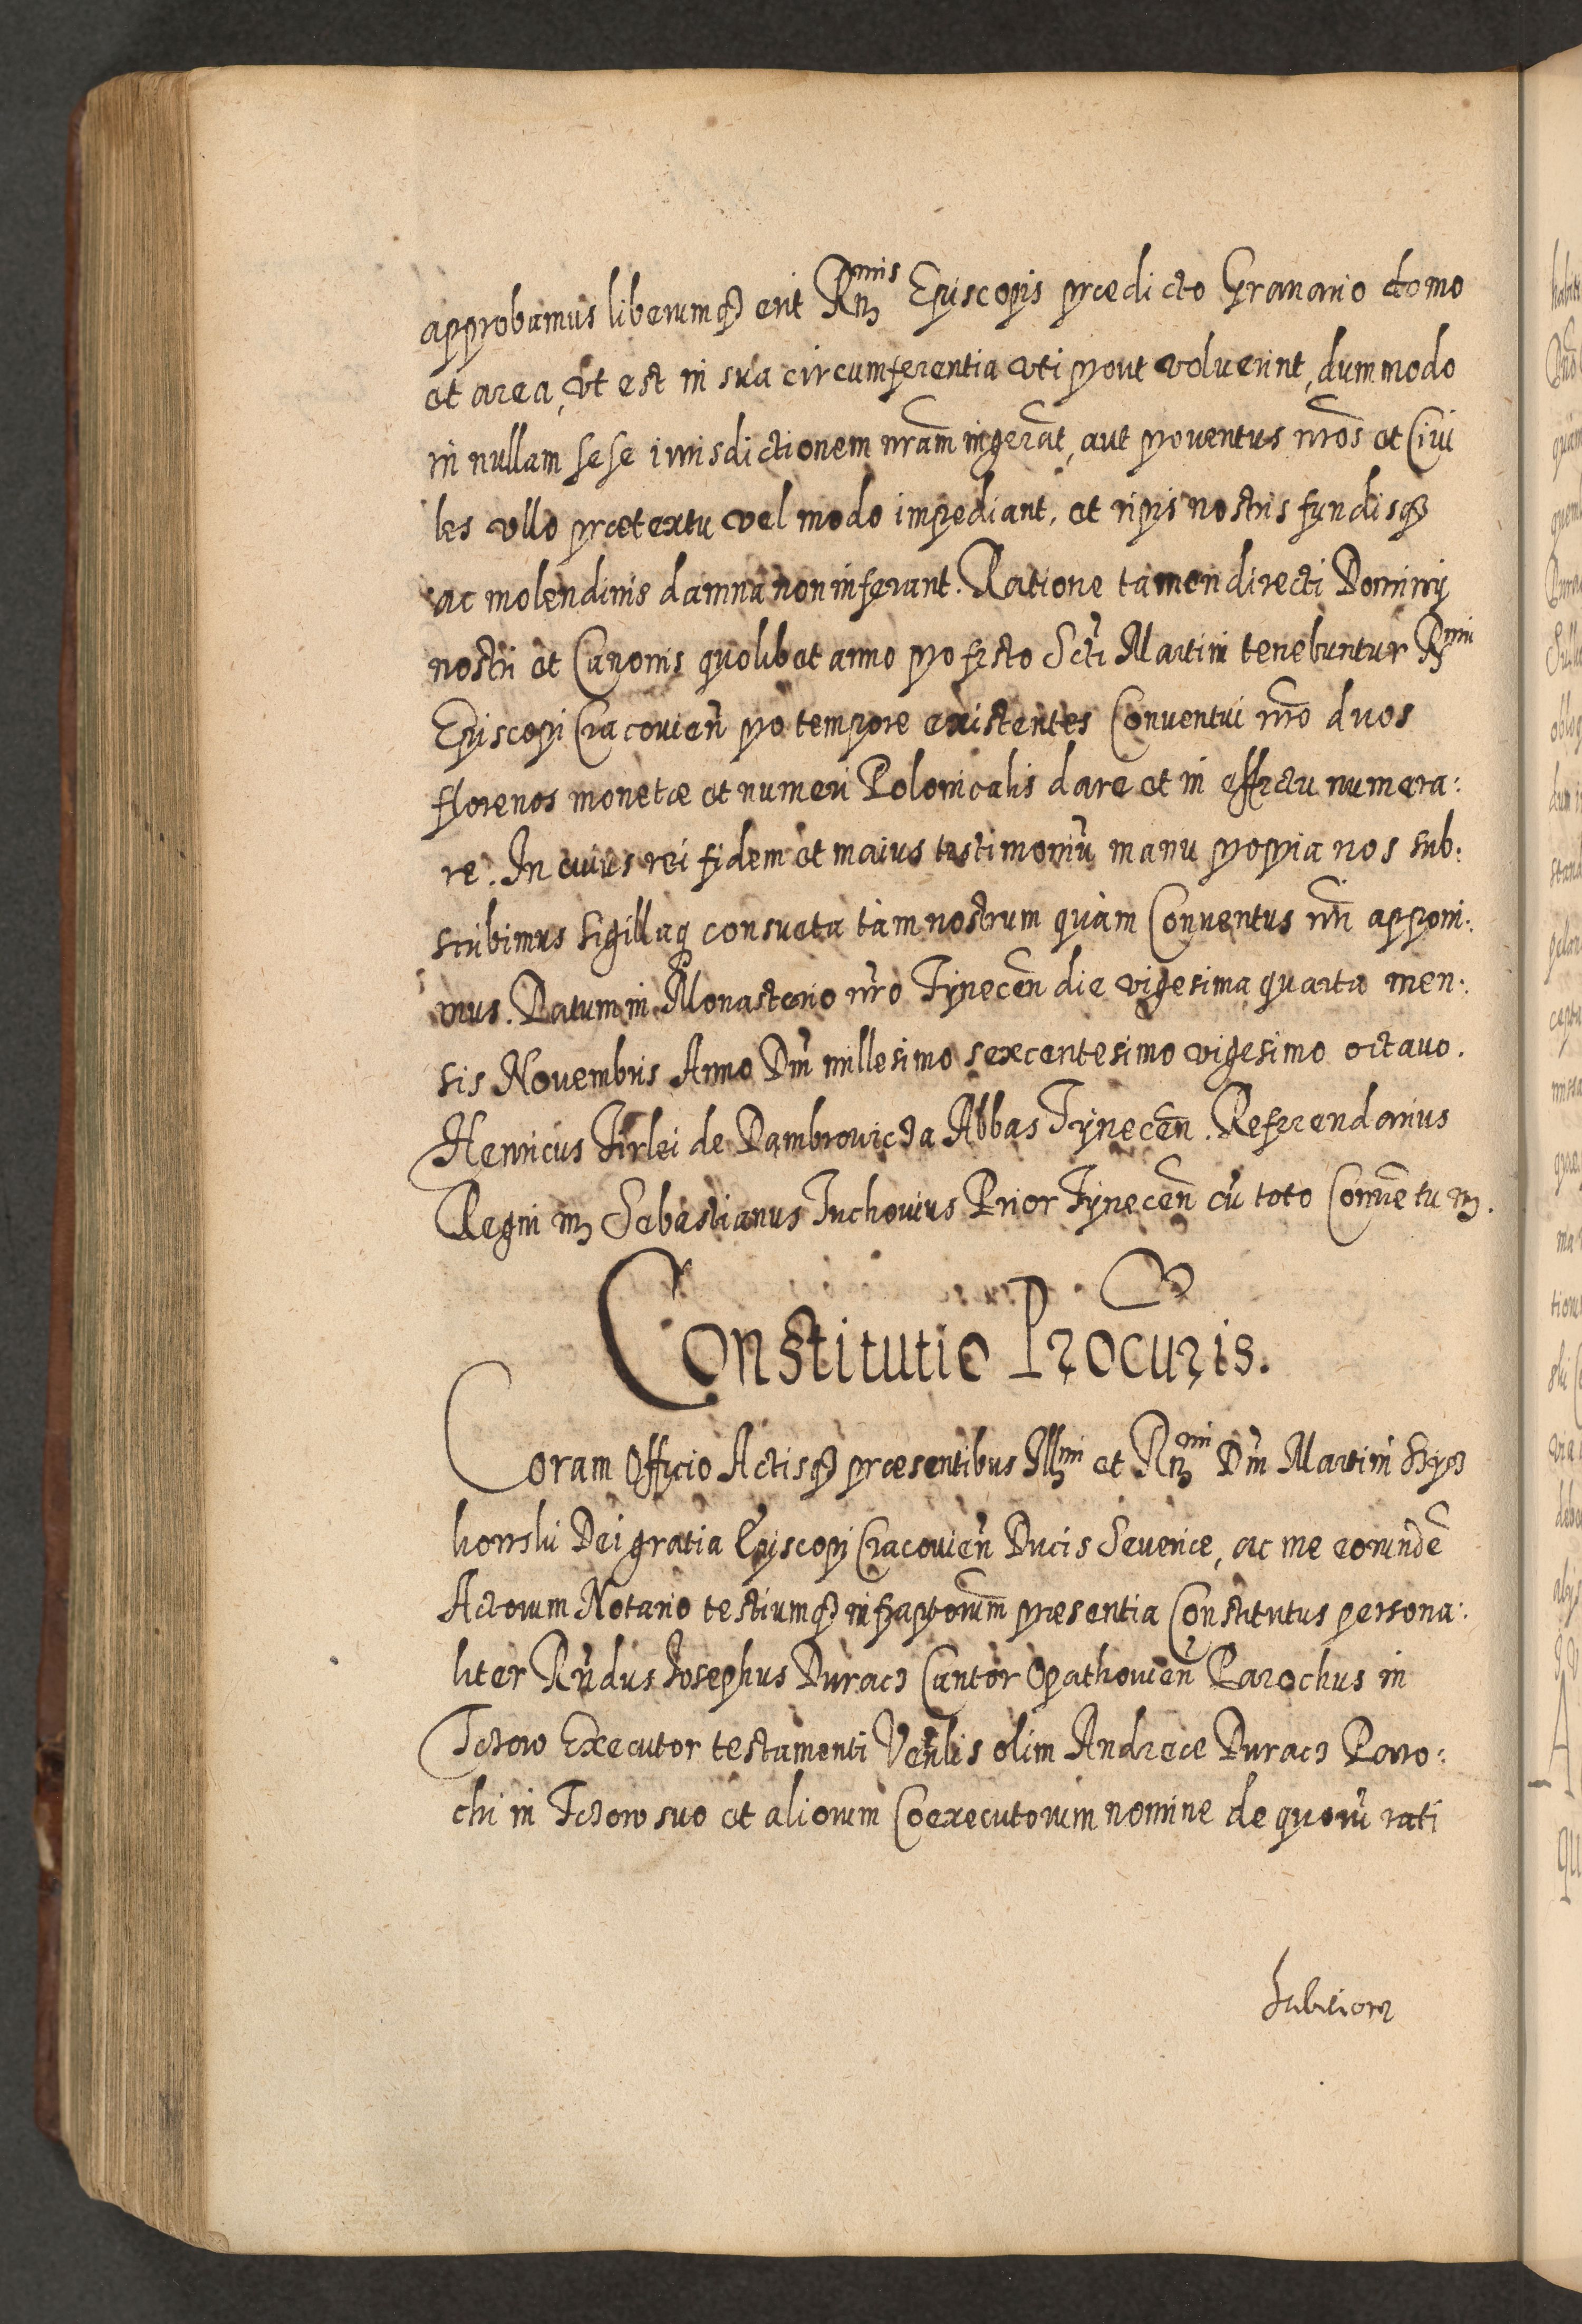 approbamus liberumq₃ erit Rm̃mis Episcopis prædicto Granario domo
et area, vt est in sua circumferentia vti prout voluerint, dummodo
in nullam sese iurisdictionem nr̃am ingerãt, aut prouentus nr̃os et Ciui
les vllo prætextu vel modo impediant, et ripis nostris fundisq₃
ac molendinis damna non inferant. Ratione tamen directi Dominij
nostri et Canonis quolibet anno pro festo Scti Martini tenebuntur Rmi
Episcopi Cracouieñ pro tempore existentes Conuentui nr̃o duos
florenos monetæ et numeri Polonicalis dare et in effectu numera:
re. In cuius rei fidem et maius testimoniũ manu propria nos sub:
scribimus sigillaq₃ consueta tàm nostrum quàm Conuentus nr̃i apponi:
mus. Datum in Monasterio nr̃o Tyneceñ die vigesima quarta men:
sis Nouembris Anno Dñi millesimo sexcentesimo vigesimo octauo.
Henricus Firlei de Dambrowicza Abbas Tyneceñ. Referendarius
Regni mp Sebastianus Tuchouius Prior Tyneceñ cũ toto Conuẽtu mp.
Constitutio Procuris.
Coram Officio Actisq₃ præsentibus Illmi et Rmi Dñi Martini Szysz
kowski Dei gratia Episcopi Cracouieñ Ducis Seueriæ, ac me eorundẽ
Actorum Notario testiumq₃ infraptorum presentia Constitutus persona:
liter Rñdus Iosephus Duracz Cantor Opathouieñ Parochus in
Tczow Executor testamenti Veñlis olim Andreæ Duracz Paro:
chi in Tczow suo et aliorum Coexecutorum nomine de quorũ rati